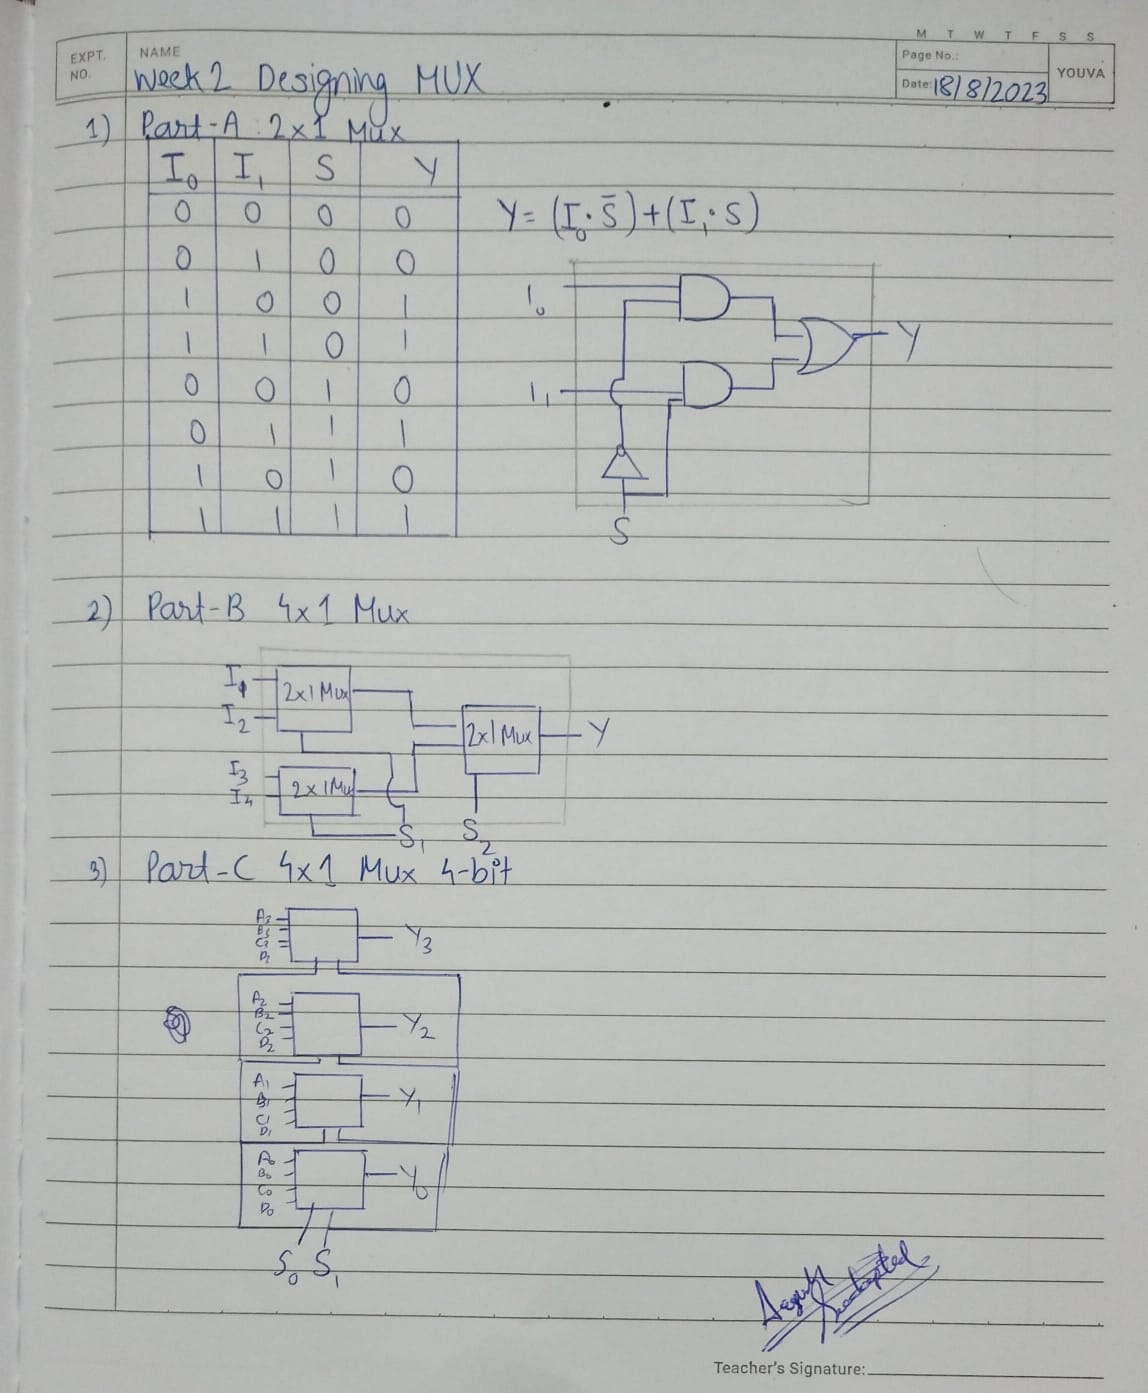 M T W T F S S
EXPT. NO.
NAME
Week 2 Designing MUX
Page No.:
Date: 18/8/2023
YOUVA
1) Part-A : 2x1 Mux
I₀ I₁ S Y
0 0 0 0
0 1 0 0
1 0 0 1
1 1 0 1
0 0 1 0
0 1 1 1
1 0 1 0
1 1 1 1
Y = (I₀·S̄)+(I₁·S)
I₀
I₁
Y
S
2) Part-B 4x1 Mux
I₁
2x1 Mux
I₂
2x1 Mux
Y
I₃
2x1Mu
I₄
S₁ S₂
3) Part-C 4x1 Mux 4-bit
A₃
B₃
C₃
Y₃
A₂
B₂
C₂
D₂
Y₂
A₁
B₁
C₁
D₁
Y₁
A₀
B₀
C₀
D₀
Y₀
S₀ S₁
Teacher's Signature: